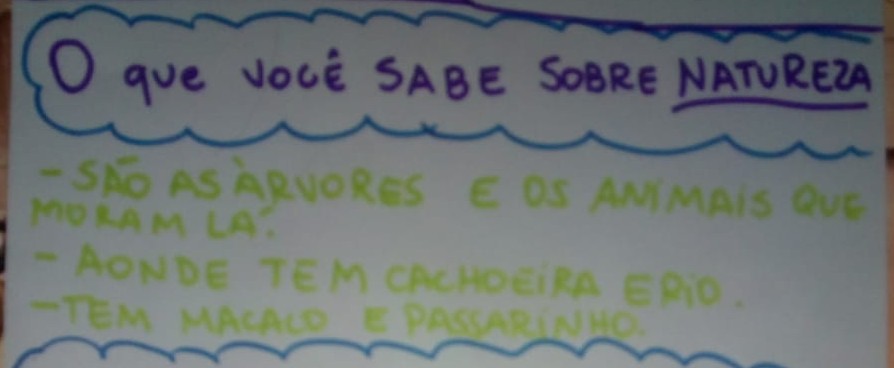 O que VOCÊ SABE SOBRE NATUREZA
- SÃO AS ÀRVORES E OS ANIMAIS QUE
MORAM LÁ.
- AONDE TEM CACHOEIRA E RIO.
- TEM MACACO E PASSARINHO.